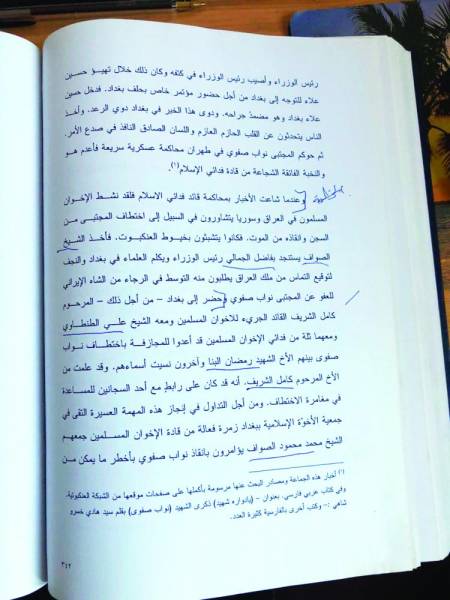 رئيس الوزراء وأصيب رئيس الوزراء في كتفه وكان ذلك خلال تهيؤ حسين
علاء للتوجه إلى بغداد من أجل حضور مؤتمر خاص بحلف بغداد. فدخل حسين
علاء بغداد وهو مضمد جراحه. ودوى هذا الخبر في بغداد دوي الرعد. وأخذ
الناس يتحدثون عن القلب الحازم العازم واللسان الصادق النافذ في صدع الأمر.
ثم حوكم المجتبى نواب صفوي في طهران محاكمة عسكرية سريعة فأعدم هو
والنخبة الفائقة الشجاعة من قادة فدائي الإسلام(١).
وعندما شاعت الأخبار بمحاكمة قائد فدائي الاسلام فلقد نشط الإخوان
المسلمون في العراق وسوريا يتشاورون في السبيل إلى اختطاف المجتبى من
السجن وانقاذه من الموت. فكانوا يتشبثون بخيوط العنكبوت. فأخذ الشيخ
الصواف يستنجد بفاضل الجمالي رئيس الوزراء وبكم العلماء في بغداد والنجف
لتوقيع التماس من ملك العراق يطلبون منه التوسط في الرجاء من الشاه الإيراني
للعفو عن المجتبى نواب صفوي وحضر إلى بغداد – من أجل ذلك – المرحوم
كامل الشريف القائد الجريء للاخوان المسلمين ومعه الشيخ علي الطنطاوي
ومعهما ثلة من فدائي الإخوان المسلمين قد أعدوا للمجازفة بأختطاف نواب
صفوى بينهم الأخ الشهيد رمضان البنا وآخرون نسيت أسماءهم. وقد علمت من
الأخ المرحوم كامل الشريف. أنه قد كان على رابط مع أحد السجانين للمساعدة
في مغامرة الاختطاف. ومن أجل التداول في إنجاز هذه المهمة العسيرة التقى في
جمعية الأخوّة الإسلامية ببغداد زمرة فعالة من قادة الإخوان المسلمين جمعهم
الشيخ محمد محمود الصواف يؤامرون بانقاذ نواب صفوي بأخطر ما يمكن من
(١) أخبار هذه الجماعة ومصادر البحث عنها مرسومة بأكملها على صفحات موقعها من الشبكة العنكبوتية.
وفي كتاب عربي فارسي. بعنوان – (يادواره شهيد) ذكرى الشهيد (نواب صفوى) بقلم سيد هادي خسرو
شاهي :– وكتب أخرى بالفارسية كثيرة العدد.
٣٤٢